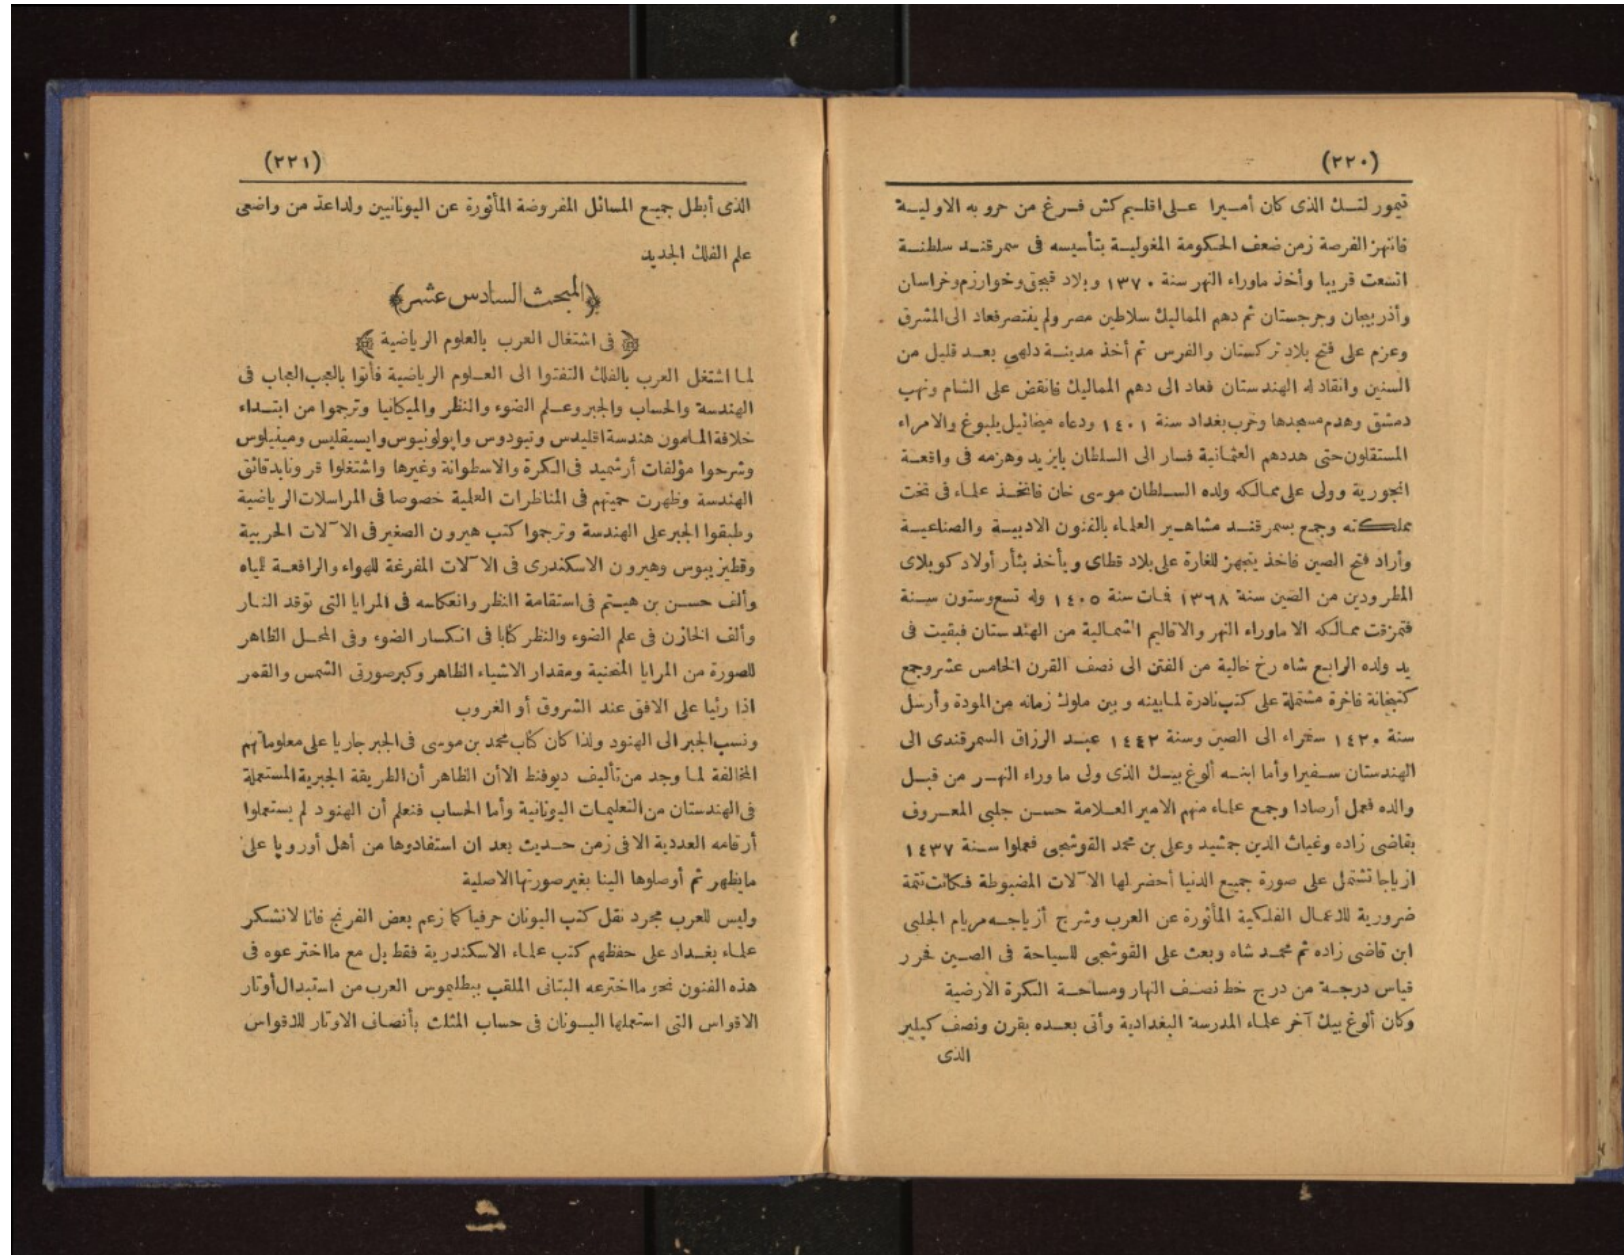 (٢٢٠)
تيمور لنك الذى كان أميرا على اقليم كش فرغ من حروبه الاولية
فانتهز الفرصة زمن ضعف الحكومة المغولية بتأسيسه فى سمرقند سلطنة
اتسعت قريبا وأخذ ماوراء النهر سنة ١٣٧٠ وبلاد قبچق وخوارزم وخراسان
وأذربيجان وجرجستان ثم دهم المماليك سلاطين مصر ولم يفتصر فعاد الى المشرق
وعزم على فتح بلاد تركستان والفرس ثم أخذ مدينة دلهى بعد قليل من
السنين وانقاد له الهندستان فعاد الى دهم المماليك فانقض على الشام ونهب
دمشق وهدم مسجدها وخرب بغداد سنة ١٤٠١ ودعاه ميخائيل يلبوغ والامراء
المستقلون حتى هددهم العثمانية فسار الى السلطان بايزيد وهزمه فى واقعة
انجورية وولى على ممالكه ولده السلطان موسى خان فاتخذ علماء فى تخت
مملكته وجمع بسمرقند مشاهير العلماء بالفنون الادبية والصناعية
وأراد فتح الصين فاخذ يتجهز للغارة على بلاد قطاى ويأخذ بثأر أولاد كوبلاى
المطرودين من الصين سنة ١٣٦٨ فمات سنة ١٤٠٥ وله تسع وستون سنة
فتمزقت ممالكه الا ماوراء النهر والاقاليم الشمالية من الهندستان فبقيت فى
يد ولده الرابع شاه رخ خالية من الفتن الى نصف القرن الخامس عشر وجمع
كتبخانة فاخرة مشتملة على كتب نادرة لما بينه وبين ملوك زمانه من المودة وأرسل
سنة ١٤٢٠ سفراء الى الصين وسنة ١٤٤٢ عبد الرزاق السمرقندى الى
الهندستان سفيرا وأما ابنه ألوغ بيك الذى ولى ما وراء النهر من قبل
والده فعمل أرصادا وجمع علماء منهم الامير العلامة حسن جلبى المعروف
بقاضى زاده وغياث الدين جمشيد وعلى بن محمد القوشجى فعملوا سنة ١٤٣٧
ازياجا تشتمل على صورة جميع الدنيا أحضر لها الآلات المضبوطة فكانت تتمة
ضرورية للاعمال الفلكية المأثورة عن العرب وشرح أزياجه مريام الجلبى
ابن قاضى زاده ثم محمد شاه وبعث على القوشجى للسياحة فى الصين فحرر
قياس درجة من درج خط نصف النهار ومساحة الكرة الارضية
وكان ألوغ بيك آخر علماء المدرسة البغدادية وأتى بعده بقرن ونصف كيلير
الذى
(٢٢١)
الذى أبطل جميع المسائل المفروضة المأثورة عن اليونانيين ولداعد من واضعى
علم الفلك الجديد
﴿المبحث السادس عشر﴾
﴿فى اشتغال العرب بالعلوم الرياضية﴾
لما اشتغل العرب بالفلك التفتوا الى العلوم الرياضية فأتوا بالعجب العجاب فى
الهندسة والحساب والجبر وعلم الضوء والنظر والميكانيا وترجموا من ابتداء
خلافة المامون هندسة اقليدس وتيودوس واپولونيوس وايسيقليس ومينيلوس
وشرحوا مؤلفات أرشميد فى الكرة والاسطوانة وغيرها واشتغلوا قرونا بدقائق
الهندسة وظهرت حميتهم فى المناظرات العلمية خصوصا فى المراسلات الرياضية
وطبقوا الجبر على الهندسة وترجموا كتب هيرون الصغير فى الآلات الحربية
وقطيزيبوس وهيرون الاسكندرى فى الآلات المفرغة للهواء والرافعة للمياه
وألف حسن بن هيتم فى استقامة النظر وانعكاسه فى المرايا التى توقد النار
وألف الخازن فى علم الضوء والنظر كتابا فى انكسار الضوء وفى المحل الظاهر
للصورة من المرايا المنحنية ومقدار الاشياء الظاهر وكبر صورتى الشمس والقمر
اذا رئيا على الافق عند الشروق أو الغروب
ونسب الجبر الى الهنود ولذا كان كتاب محمد بن موسى فى الجبر جاريا على معلوماتهم
المخالفة لما وجد من تأليف ديوفنط الا أن الظاهر أن الطريقة الجبرية المستعملة
فى الهندستان من التعليمات اليونانية وأما الحساب فنعلم أن الهنود لم يستعملوا
أرقامه العددية الا فى زمن حديث بعد ان استفادوها من أهل أوروپا على
مايظهر ثم أوصلوها الينا بغير صورتها الاصلية
وليس للعرب مجرد نقل كتب اليونان حرفيا كما زعم بعض الفرنج فانا لانشكر
علماء بغداد على حفظهم كتب علماء الاسكندرية فقط بل مع مااخترعوه فى
هذه الفنون نحو مااخترعه البتانى الملقب ببطليموس العرب من استبدال أوتار
الاقواس التى استعملها اليونان فى حساب المثلث بأنصاف الاوتار للاقواس